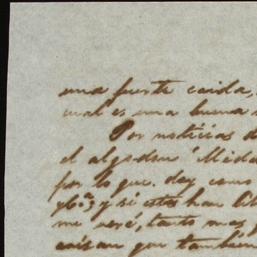 una fuerte caida,
cual es una buena
Por noticias d
el algodon Mida
por lo que doy como
y si estos han lle
me veré, tanto mas
avisan que tambien